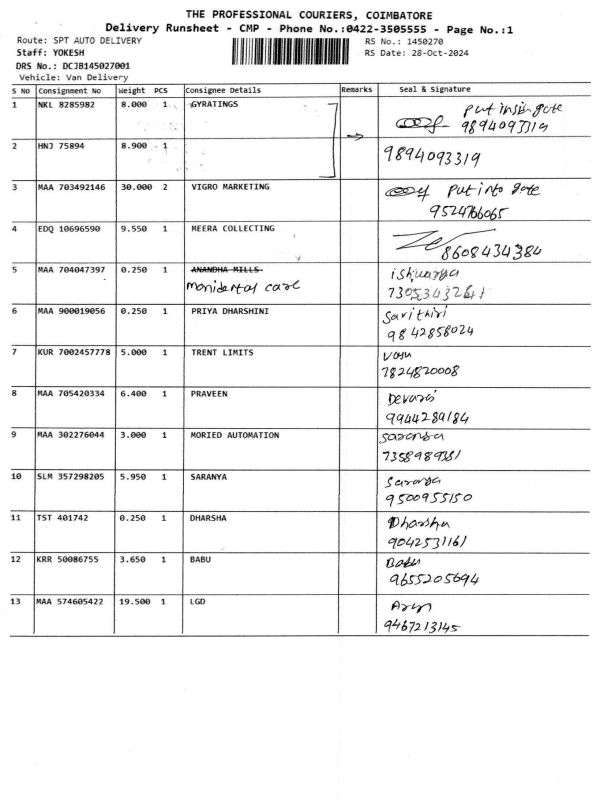 THE PROFESSIONAL COURIERS, COIMBATORE
Delivery Runsheet - CMP - Phone No.:0422-3505555 - Page No.:1
Route: SPT AUTO DELIVERY RS No.: 1450270
Staff: YOKESH RS Date: 28-Oct-2024
DRS No.: DCJB145027001
Vehicle: Van Delivery
S No Consignment No Weight PCS Consignee Details Remarks Seal & Signature
1 NKL 8285982 8.000 1 GYRATINGS put inside gate
9894093319
2 HNJ 75894 8.900 1 9894093319
3 MAA 703492146 30.000 2 VIGRO MARKETING put into gate
9524766065
4 EDQ 10696590 9.550 1 MEERA COLLECTING
8608434384
5 MAA 704047397 0.250 1 ANANDHA MILLS ishwarya
care 7305343241
6 MAA 900019056 0.250 1 PRIYA DHARSHINI Savithiri
9842858024
7 KUR 7002457778 5.000 1 TRENT LIMITS vasu
7824820008
8 MAA 705420334 6.400 1 PRAVEEN
9944289184
9 MAA 302276044 3.000 1 MORIED AUTOMATION
10 SLM 357298205 5.950 1 SARANYA
9500955150
11 TST 401742 0.250 1 DHARSHA Dharsha
9042531161
12 KRR 50086755 3.650 1 BABU Babu
9655205694
13 MAA 574605422 19.500 1 LGD
9467213145